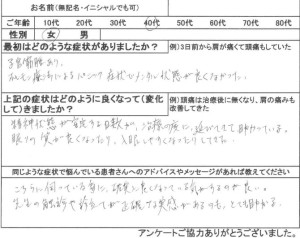 お名前(無記名・イニシャルでも可)
ご年齢 10代 20代 30代 40代 50代 60代 70代
性別 女 男
最初はどのような症状がありましたか? 例)3日前から肩が痛くて頭痛もしていた
子宮筋腫あり。
状態が良くなかった。
上記の症状はどのように良くなって(変化して)きましたか? 例)頭痛は治療後に無くなり、肩の痛みも改善してきた
精神状態が安定する日数が、治療の度に延びてきて助かっている。
眠りの質が良くなったり、入眠しやすくなったりしてる。
同じような症状で悩んでいる患者さんへのアドバイスやメッセージがあれば教えてください
こちらに伺っている毎に、確実に良くなている気がするのが良い。
先生の触診や診立てが正確な実感があるのも、とても助かる。
アンケートご協力ありがとうございました。